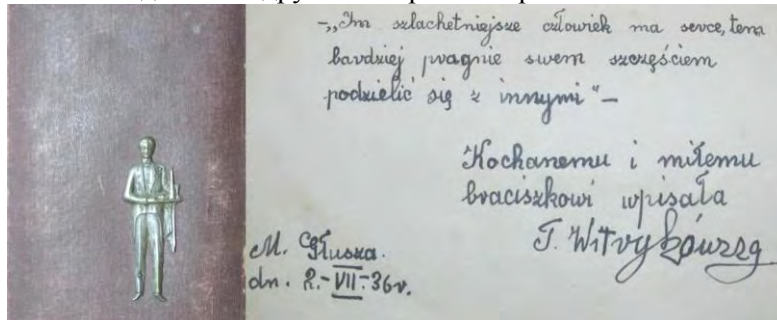 -„Im szlachetniejsze człowiek ma serce, tem
bardziej pragnie swem szczęściem
podzielić się z innymi"-
Kochanemu i miłemu
braciszkowi wpisała
M. Głusza.
dn. 2.-VII-36r.